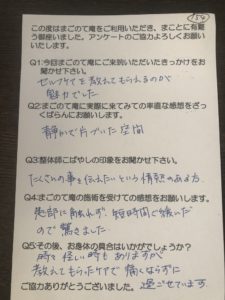 154
この度はまごのて庵をご利用いただき、まことに有難
う御座いました。アンケートのご協力よろしくお願い
いたします。
Q1:今回まごのて庵にご来院いただいたきっかけをお
聞かせ下さい。
セルフケアを教えてもらえるのが
魅力でした
Q2:まごのて庵に実際に来てみての率直な感想をざっ
くばらんにお願いします。
静かで片づいた空間
Q3:整体師こばやしの印象をお聞かせ下さい。
たくさんの事を伝えたいという情熱のある方。
Q4:まごのて庵の施術を受けての感想をお願いします。
患部に触れず、短時間で効いた
ので驚きました
Q5:その後、お身体の具合はいかがでしょうか？
時々怪しい時もありますが
教えてもらったケアで痛くならずに
ご協力ありがとうございました。過ごせています。